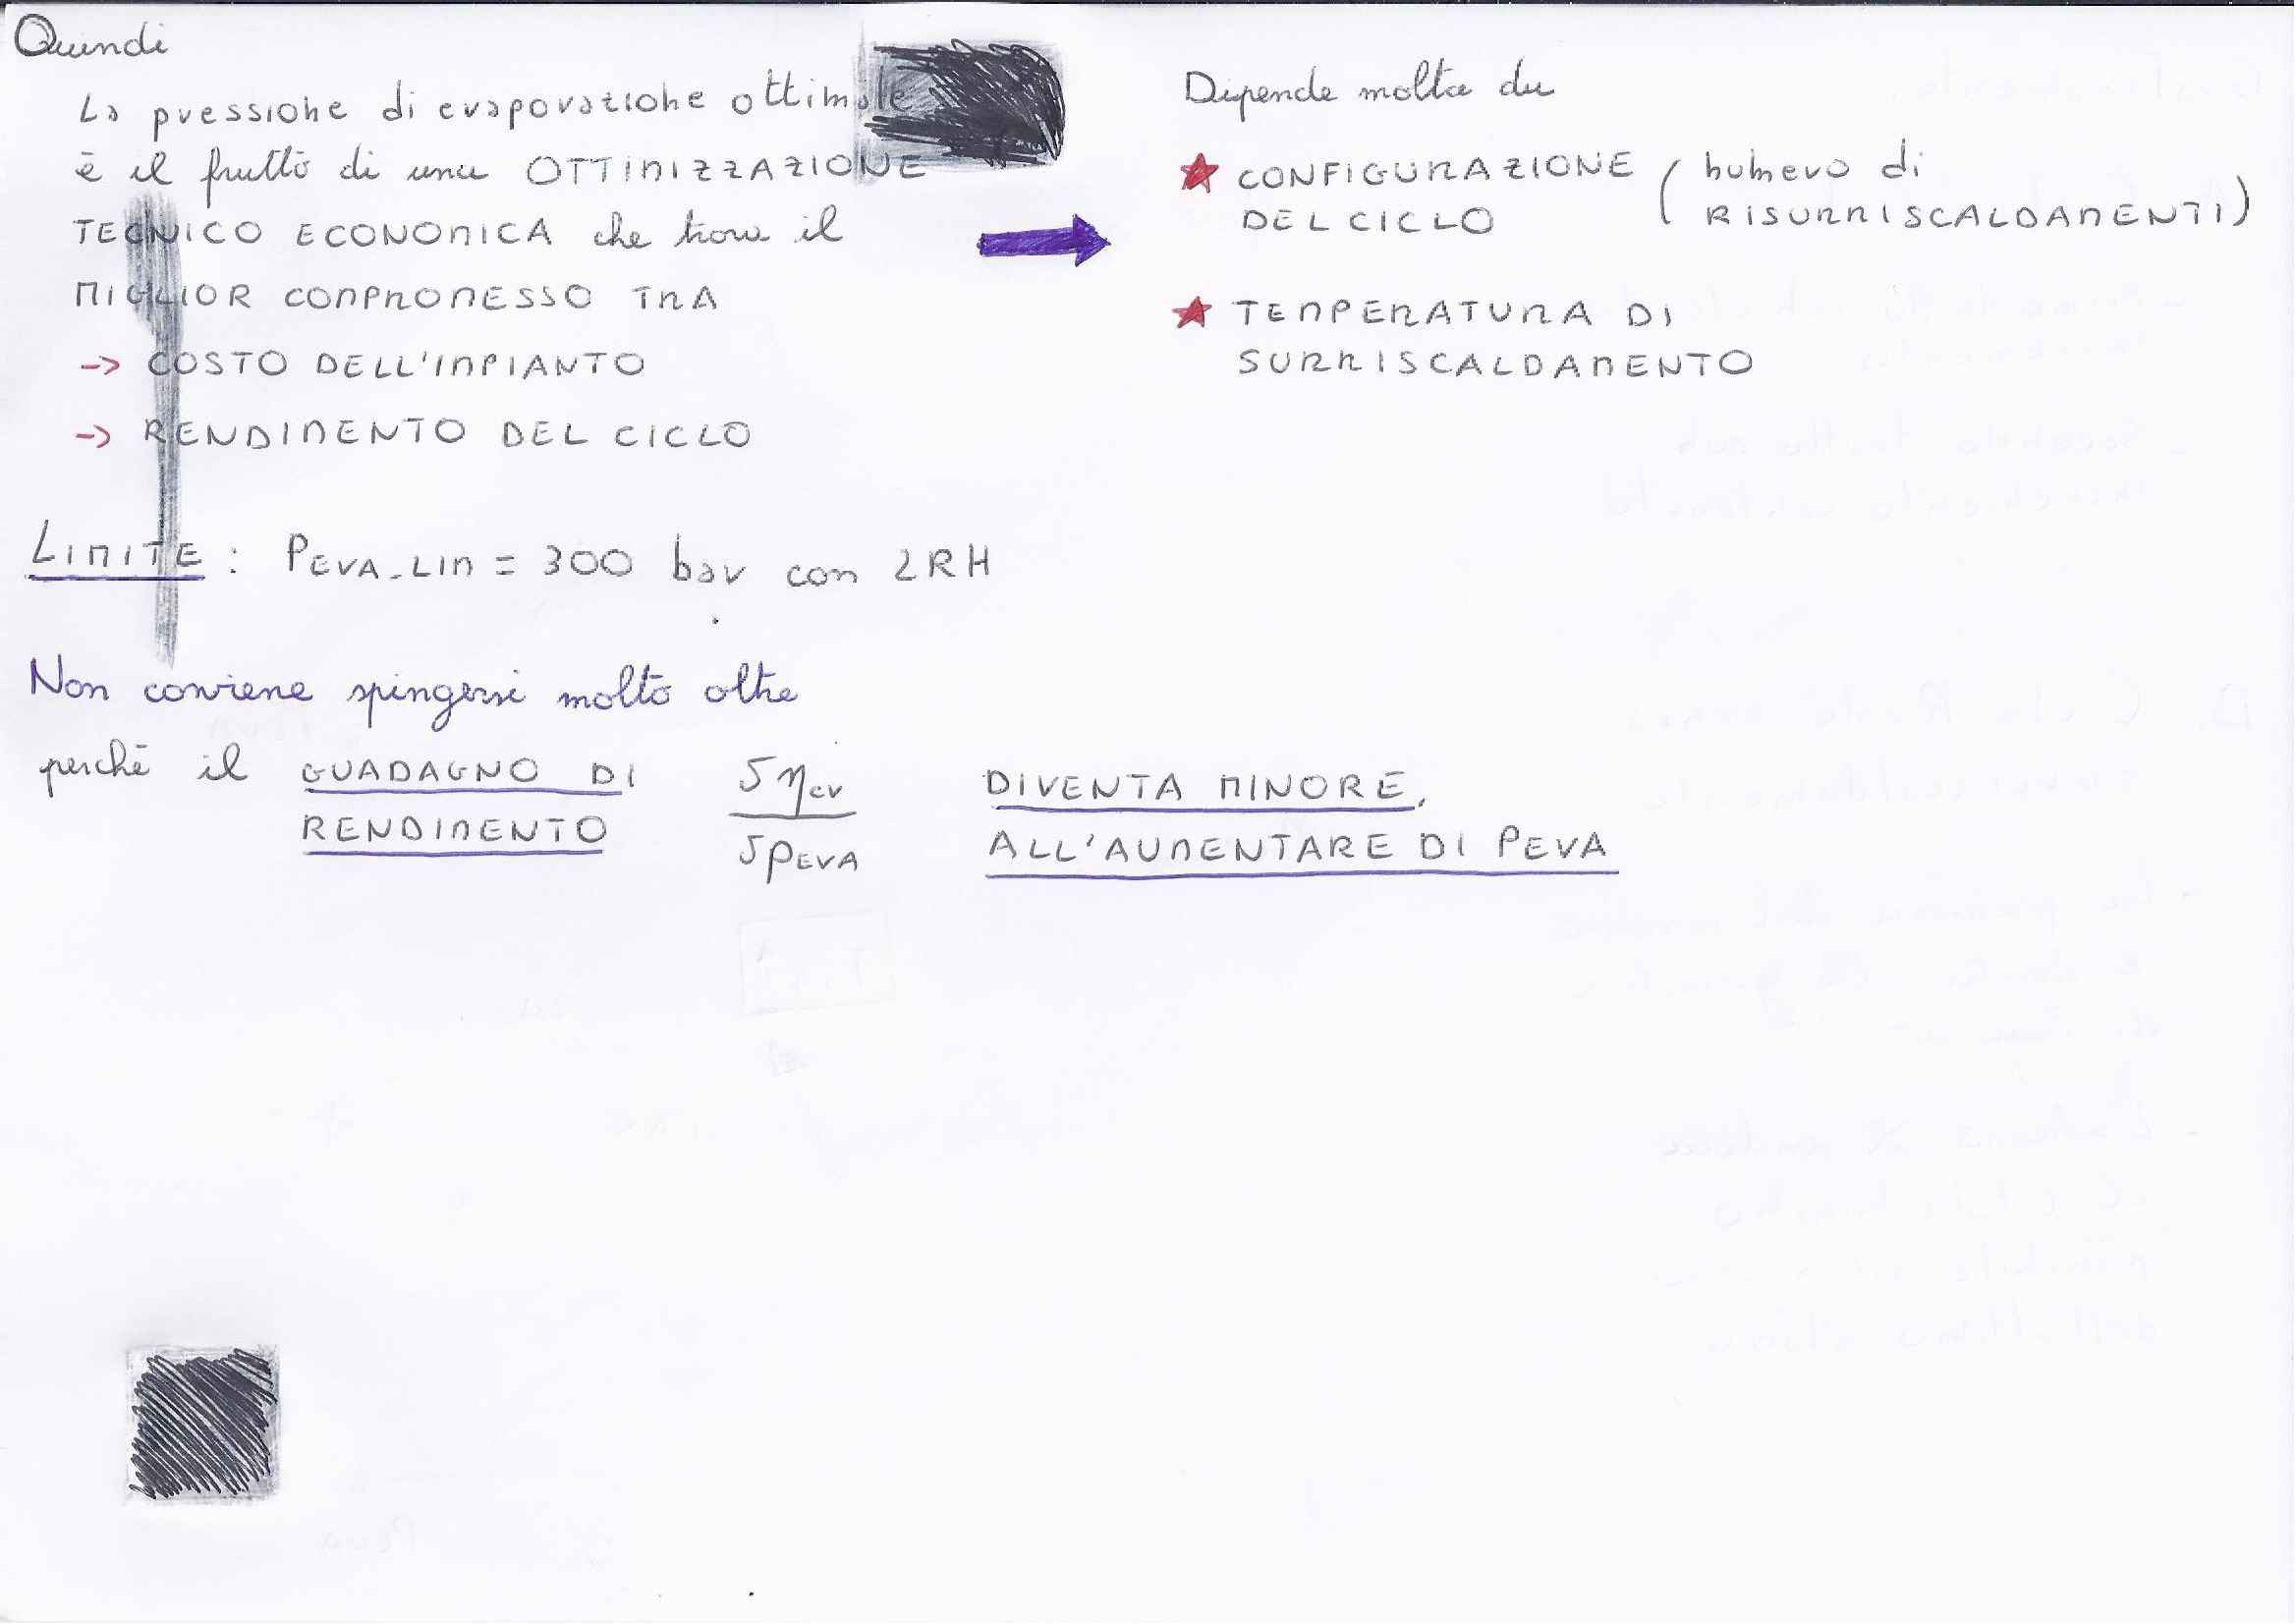 Quindi
La pressione di evaporazione ottimale
è il frutto di una OTTIMIZZAZIONE
TECNICO ECONOMICA che trova il
MIGLIOR COMPROMESSO TRA
-> COSTO DELL'IMPIANTO
-> RENDIMENTO DEL CICLO
Dipende molto da
★ CONFIGURAZIONE DEL CICLO (numero di RISURRISCALDAMENTI)
★ TEMPERATURA DI
SURRISCALDAMENTO
LIMITE: PEVA-LIM = 300 bar con 2RH
Non conviene spingersi molto oltre
perché il GUADAGNO DI RENDIMENTO δηcv / δPEVA DIVENTA MINORE,
ALL'AUMENTARE DI PEVA